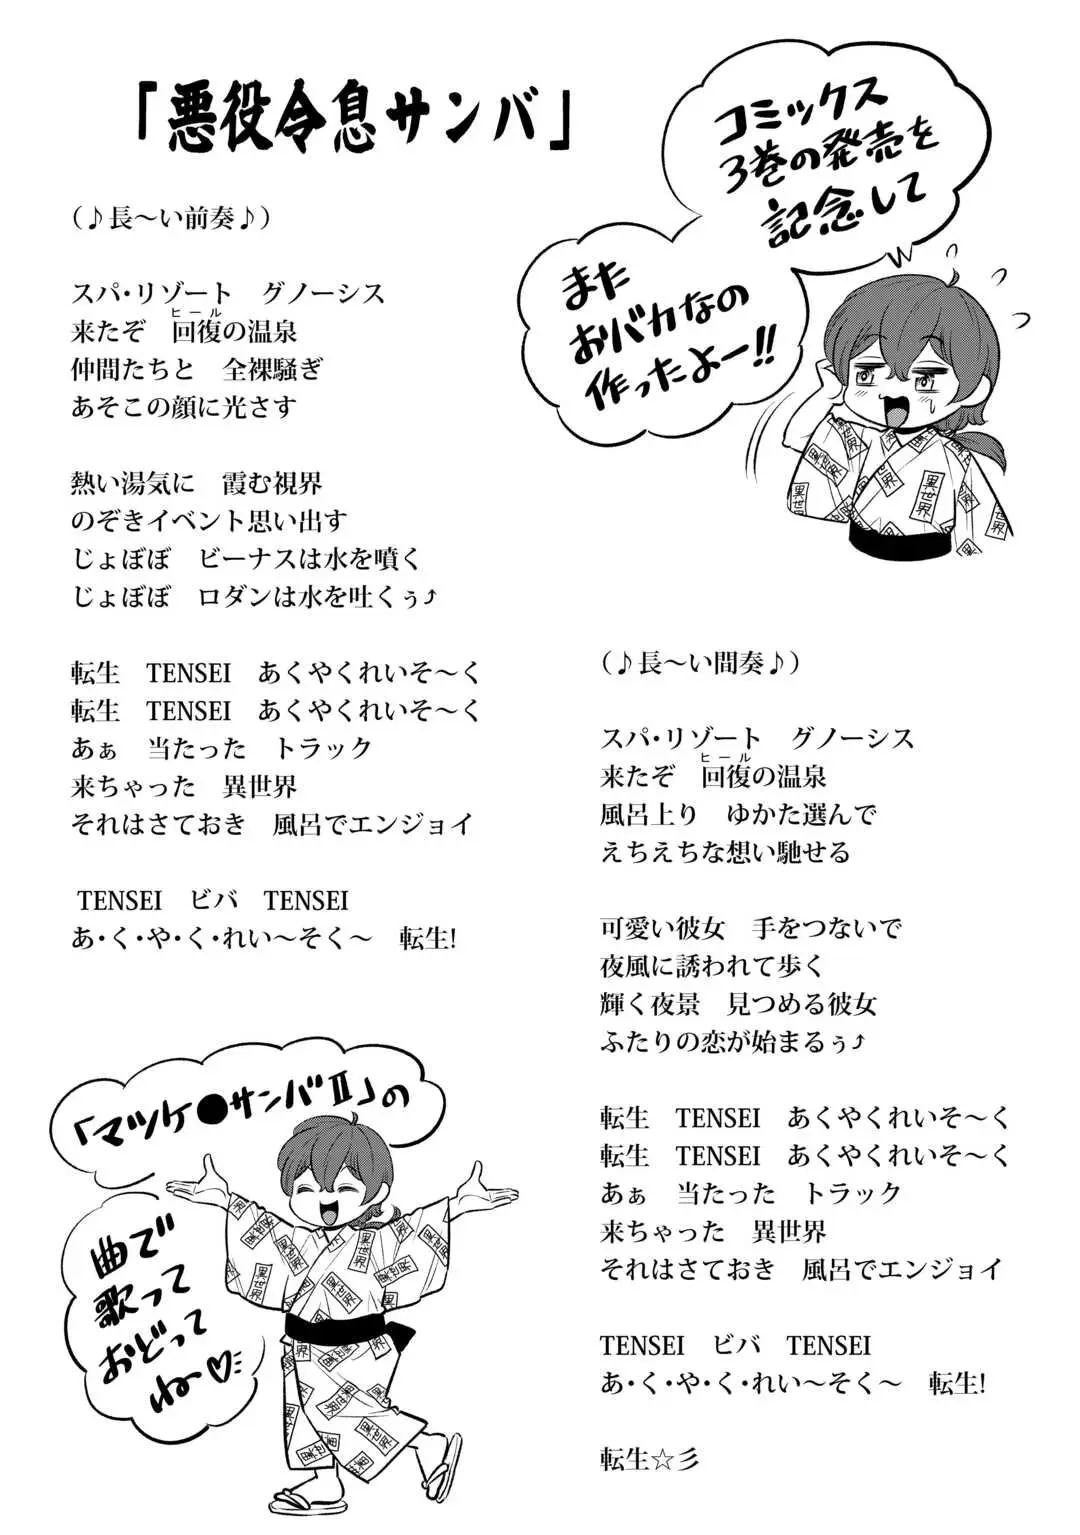 「悪役令息サンバ」
コミックス
3巻の発売を
記念して
また
おバカなの
作ったよー!!
(♪長〜い前奏♪)
スパ・リゾート　グノーシス
来たぞ　回復の温泉
ヒール
仲間たちと　全裸騒ぎ
あそこの顔に光さす
熱い湯気に　霞む視界
のぞきイベント思い出す
じょぼぼ　ビーナスは水を噴く
じょぼぼ　ロダンは水を吐くぅ⤴
転生　TENSEI　あくやくれいそ〜く
転生　TENSEI　あくやくれいそ〜く
あぁ　当たった　トラック
来ちゃった　異世界
それはさておき　風呂でエンジョイ
TENSEI　ビバ　TENSEI
あ・く・や・く・れい〜そく〜　転生!
(♪長〜い間奏♪)
スパ・リゾート　グノーシス
来たぞ　回復の温泉
ヒール
風呂上り　ゆかた選んで
えちえちな想い馳せる
可愛い彼女　手をつないで
夜風に誘われて歩く
輝く夜景　見つめる彼女
ふたりの恋が始まるぅ⤴
転生　TENSEI　あくやくれいそ〜く
転生　TENSEI　あくやくれいそ〜く
あぁ　当たった　トラック
来ちゃった　異世界
それはさておき　風呂でエンジョイ
TENSEI　ビバ　TENSEI
あ・く・や・く・れい〜そく〜　転生!
転生☆彡
「マツケ●サンバⅡ」の
曲で
歌って
おどって
ね〜♡
異世界
異世界
異世界
異世界
異世界
異世界
異世界
異世界